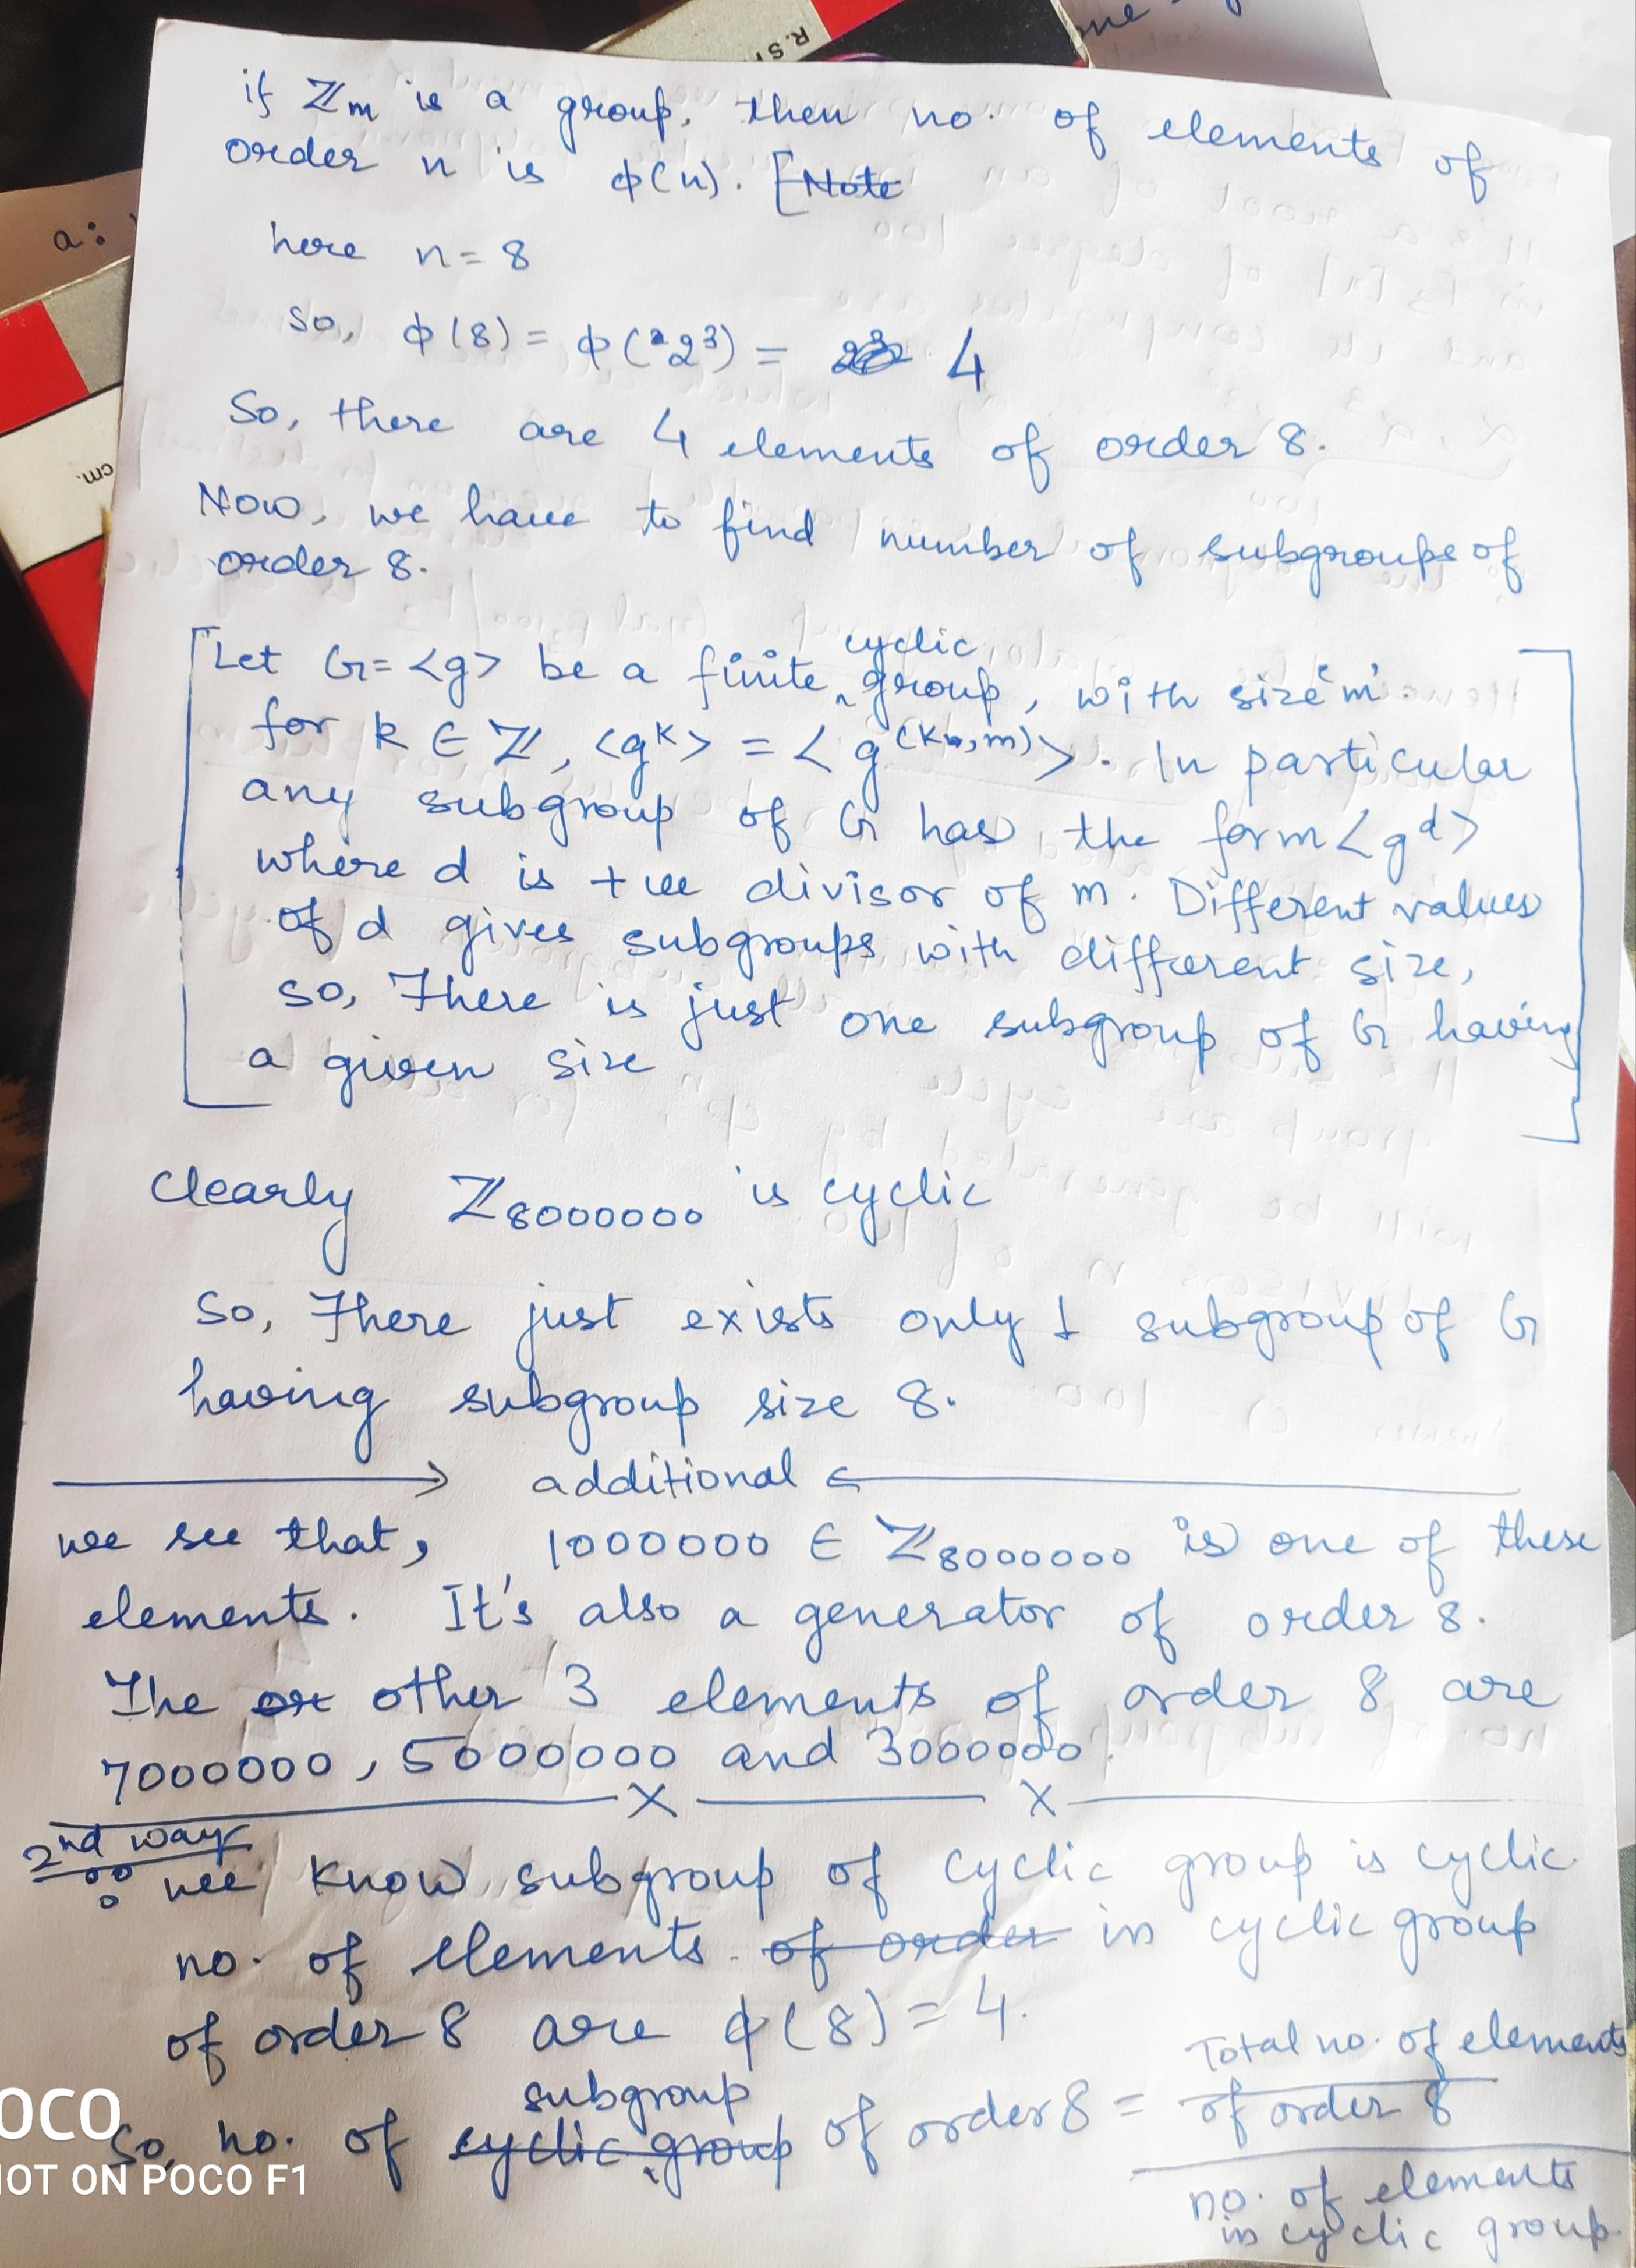 R.S
one
a:
cm.
if ℤm is a group, then no. of elements of
order n is ϕ(n). [Note
here n = 8
so, ϕ(8) = ϕ(2³) = 4
So, there are 4 elements of order 8.
Now, we have to find number of subgroups of
order 8.
Let G = <g> be a finite cyclic group, with size 'm'
for k ∈ ℤ, <g^k> = <g^(k,m)>. In particular
any subgroup of G has the form <g^d>
where d is +ve divisor of m. Different values
of d gives subgroups with different size,
so, There is just one subgroup of G having
a given size
Clearly ℤ8000000 is cyclic
So, There just exists only 1 subgroup of G
having subgroup size 8.
additional
we see that, 1000000 ∈ ℤ8000000 is one of these
elements. It's also a generator of order 8.
The or other 3 elements of order 8 are
7000000, 5000000 and 3000000.
2nd way
:: we know subgroup of cyclic group is cyclic
no. of elements of order in cyclic group
of order 8 are ϕ(8) = 4.
So, no. of cyclic group subgroup of order 8 = Total no. of elements
of order 8
no. of elements
in cyclic group
OCO
HOT ON POCO F1